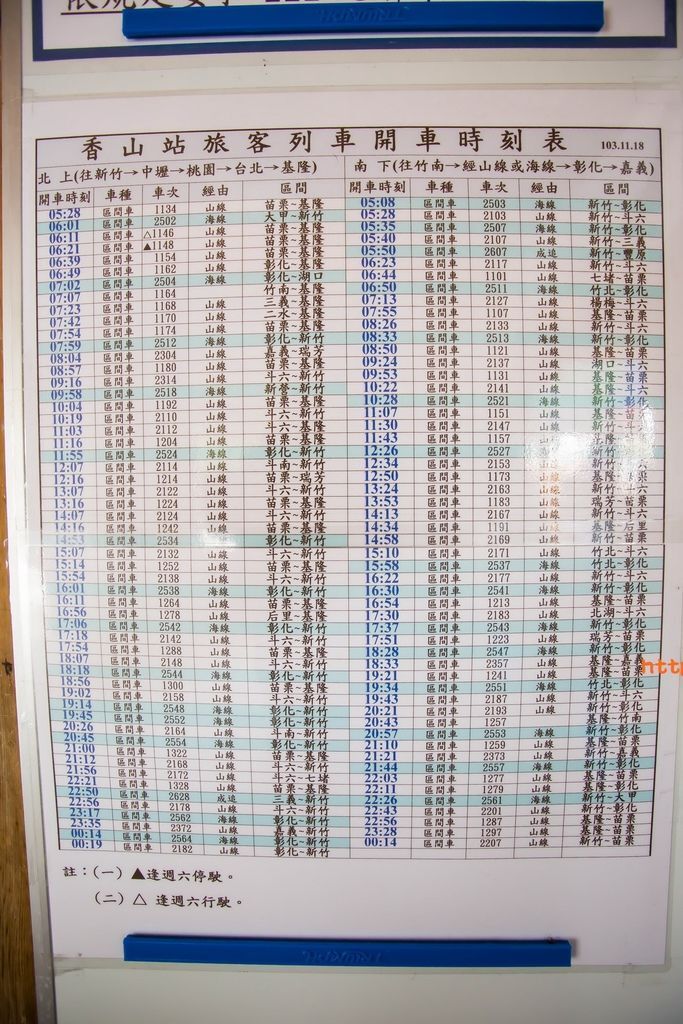 香山站旅客列車開車時刻表 103.11.18
北 上(往新竹→中壢→桃園→台北→基隆)
開車時刻 車種 車次 經由 區間
05:28 區間車 1134 山線 苗栗~基隆
06:01 區間車 2502 海線 大甲~新竹
06:11 區間車 △1146 山線 苗栗~基隆
06:21 區間車 ▲1148 山線 苗栗~基隆
06:39 區間車 1154 山線 苗栗~基隆
06:49 區間車 1162 山線 彰化~基隆
07:02 區間車 2504 海線 彰化~湖口
07:07 區間車 1164 竹南~基隆
07:23 區間車 1168 山線 三義~基隆
07:42 區間車 1170 山線 二水~基隆
07:54 區間車 1174 山線 苗栗~基隆
07:59 區間車 2512 海線 彰化~新竹
08:04 區間車 2304 山線 嘉義~瑞芳
08:57 區間車 1180 山線 苗栗~基隆
09:16 區間車 2314 山線
09:58 區間車 2518 海線
10:04 區間車 1192 山線 苗栗~基隆
10:19 區間車 2110 山線
11:03 區間車 2112 山線 斗六~新竹
11:16 區間車 1204 山線 苗栗~基隆
11:55 區間車 2524 海線 彰化~新竹
12:07 區間車 2114 山線 斗南~新竹
12:16 區間車 1214 山線 苗栗~瑞芳
13:07 區間車 2122 山線 斗六~新竹
13:16 區間車 1224 山線 苗栗~基隆
14:07 區間車 2124 山線 斗六~新竹
14:16 區間車 1242 山線 苗栗~基隆
14:53 區間車 2534 海線
15:07 區間車 2132 山線 斗六~新竹
15:14 區間車 1252 山線 苗栗~基隆
15:54 區間車 2138 山線 斗六~新竹
16:01 區間車 2538 海線 彰化~新竹
16:11 區間車 1264 山線 苗栗~基隆
16:56 區間車 1278 山線 后里~基隆
17:06 區間車 2542 海線 彰化~新竹
17:18 區間車 2142 山線 斗六~新竹
17:54 區間車 1288 山線 苗栗~基隆
18:07 區間車 2148 山線 斗六~新竹
18:18 區間車 2544 海線 彰化~新竹
18:56 區間車 1300 山線 苗栗~基隆
19:02 區間車 2158 山線 斗六~新竹
19:14 區間車 2548 海線 彰化~新竹
19:45 區間車 2552 海線 彰化~新竹
20:26 區間車 2164 山線 斗南~新竹
20:45 區間車 2554 海線 彰化~新竹
21:00 區間車 1322 山線 苗栗~基隆
21:12 區間車 2168 山線 斗六~新竹
21:56 區間車 2172 山線 斗六~七堵
22:21 區間車 1328 山線
22:50 區間車 2628 成追 三義~新竹
22:56 區間車 2178 山線 斗六~新竹
23:17 區間車 2562 海線 彰化~新竹
23:35 區間車 2372 山線 嘉義~新竹
00:14 區間車 2564 海線 彰化~新竹
00:19 區間車 2182 山線 彰化~新竹
南 下(往竹南→經山線或海線→彰化→嘉義)
開車時刻 車種 車次 經由 區間
05:08 區間車 2503 海線 新竹~彰化
05:28 區間車 2103 山線 新竹~斗六
05:35 區間車 2507 海線 新竹~彰化
05:40 區間車 2107 山線 新竹~三義
05:50 區間車 2607 成追 新竹~豐原
06:23 區間車 2117 山線 新竹~斗六
06:44 區間車 1101 山線 七堵~苗栗
06:50 區間車 2511 海線 竹北~彰化
07:13 區間車 2127 山線 楊梅~斗六
07:55 區間車 1107 山線 基隆~苗栗
08:26 區間車 2133 山線 新竹~斗六
08:33 區間車 2513 海線 新竹~彰化
08:50 區間車 1121 山線 基隆~苗栗
09:24 區間車 2137 山線 湖口~斗六
09:53 區間車 1131 山線 基隆~苗栗
10:22 區間車 2141 山線
10:28 區間車 2521 海線 新竹~彰化
11:07 區間車 1151 山線 基隆~苗栗
11:30 區間車 2147 山線
11:43 區間車 1157 山線
12:26 區間車 2527 海線
12:34 區間車 2153 山線
12:50 區間車 1173 山線
13:24 區間車 2163 山線
13:53 區間車 1183 山線 瑞芳~苗栗
14:13 區間車 2167 山線 新竹~斗六
14:34 區間車 1191 山線 基隆~后里
14:58 區間車 2169 山線 新竹~斗六
15:10 區間車 2171 山線 竹北~斗六
15:58 區間車 2537 海線 竹北~彰化
16:22 區間車 2177 山線 新竹~斗六
16:30 區間車 2541 海線 新竹~彰化
16:54 區間車 1213 山線 基隆~苗栗
17:30 區間車 2183 山線 北湖~斗六
17:37 區間車 2543 海線 新竹~彰化
17:51 區間車 1223 山線 瑞芳~苗栗
18:28 區間車 2547 海線 新竹~彰化
18:33 區間車 2357 山線 基隆~嘉義
19:21 區間車 1241 山線 基隆~苗栗
19:34 區間車 2551 海線 竹北~彰化
19:43 區間車 2187 山線 新竹~斗六
20:21 區間車 2193 山線
20:43 區間車 1257 基隆~竹南
20:57 區間車 2553 海線 新竹~彰化
21:10 區間車 1259 山線 基隆~苗栗
21:21 區間車 2373 山線 新竹~嘉義
21:44 區間車 2557 海線 新竹~彰化
22:03 區間車 1277 山線 基隆~苗栗
22:11 區間車 1279 山線 基隆~苗栗
22:26 區間車 2561 海線 新竹~大甲
22:43 區間車 2201 山線 新竹~彰化
22:56 區間車 1287 山線 基隆~苗栗
23:28 區間車 1297 山線 基隆~苗栗
00:14 區間車 2207 山線 新竹~苗栗
http
註：(一) ▲逢週六停駛。
(二) △ 逢週六行駛。